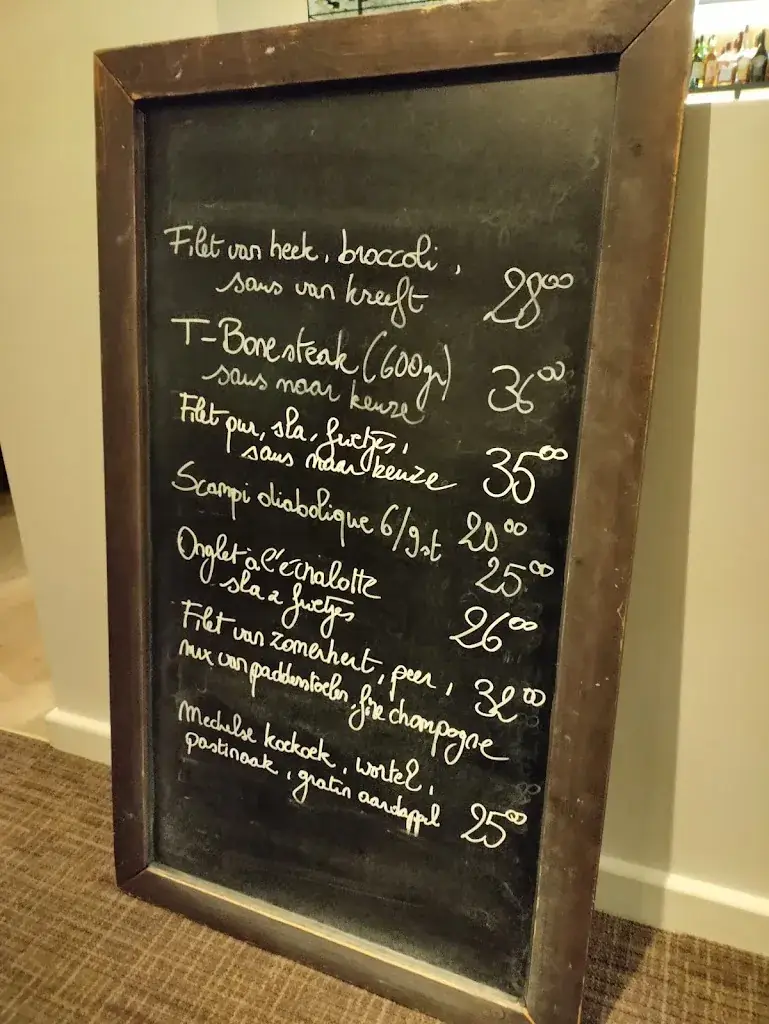 Filet van heek, broccoli,
saus van kreeft 28⁰⁰
T-Bonesteak (600gr) 36⁰⁰
saus naar keuze
Filet pur, sla, frietjes,
saus naar keuze 35⁰⁰
Scampi diabolique 6/9st 20⁰⁰
25⁰⁰
Onglet à l'echalotte
sla & frietjes 26⁰⁰
Filet van zomerhert, peer, 32⁰⁰
mix van paddenstoelen, fine champagne
Mechelse koekoek, wortel,
pastinaak, gratin aardappel 25⁰⁰